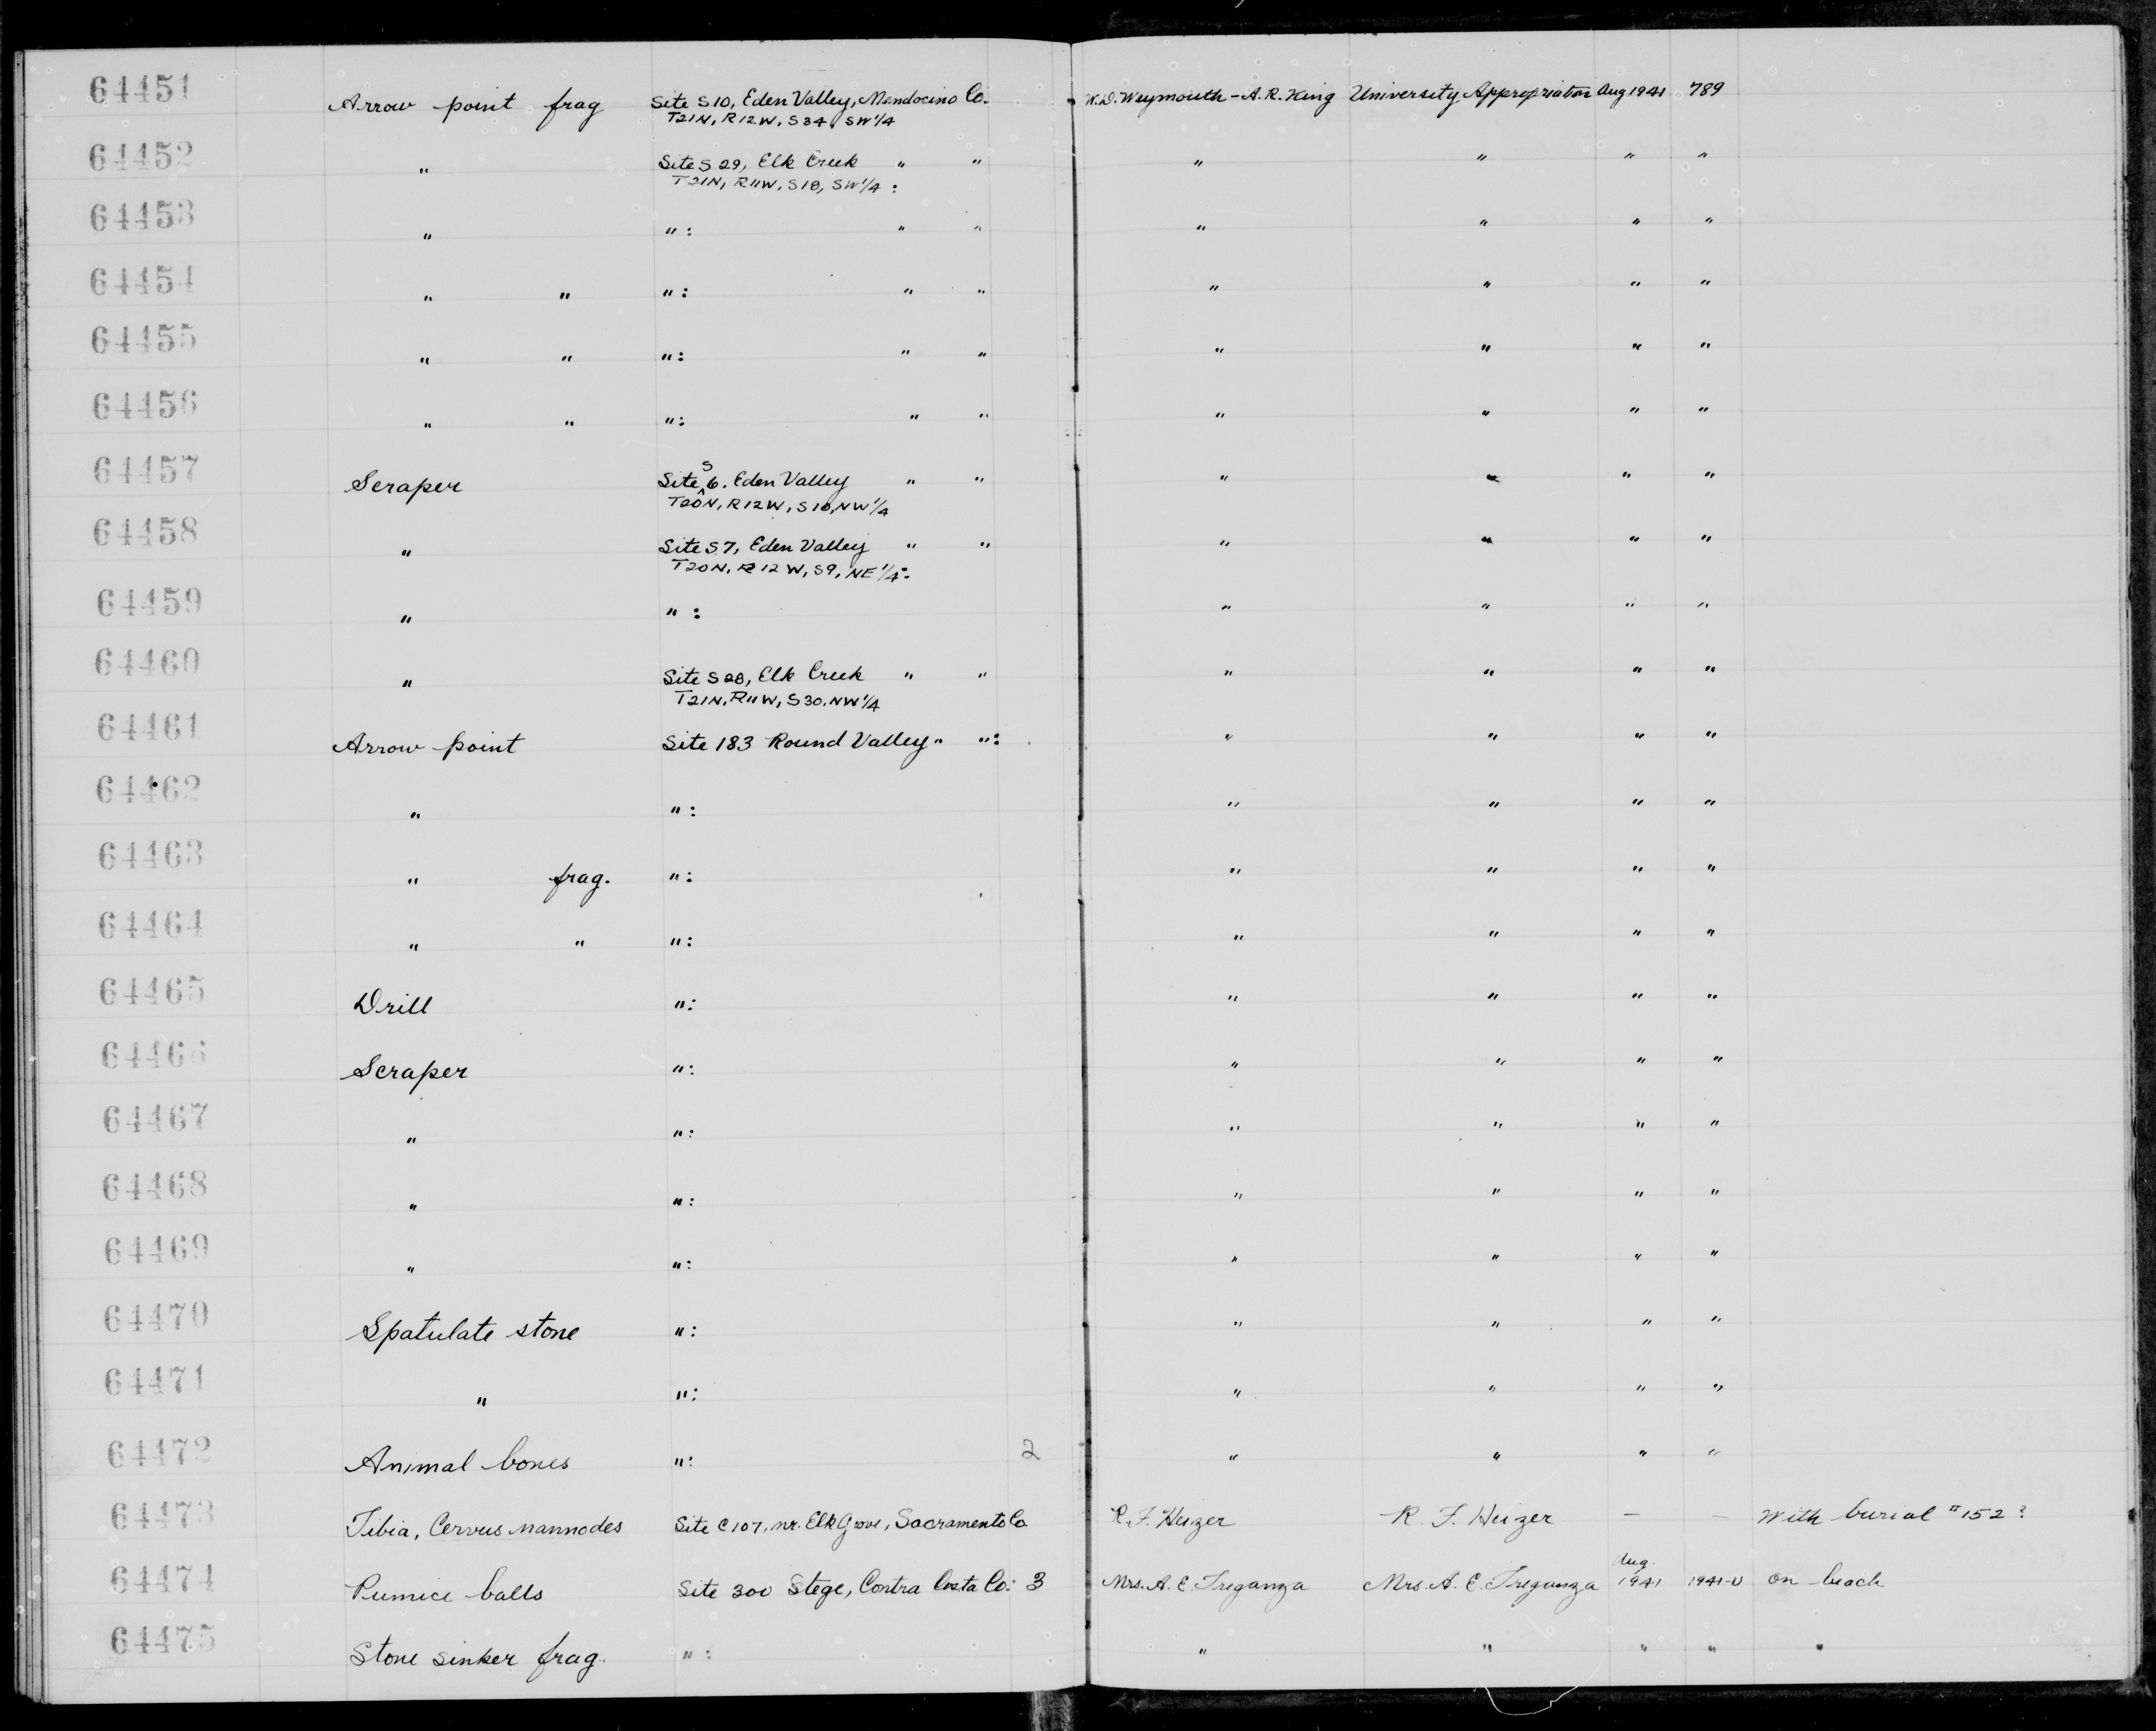 64451 Arrow point frag Site S10, Eden Valley, Mendocino Co. W.D. Weymouth - A.R. King University Appropriation Aug 1941 789
T21N, R12W, S34, SW 1/4
64452 " Site S 29, Elk Creek " " " " " "
T21N, R11W, S18, SW 1/4 :
64453 " " : " " " " " "
64454 " " " : " " " " " "
64455 " " " : " " " " " "
64456 " " " : " " " " " "
64457 Scraper Site S 6. Eden Valley " " " " " "
T20N, R12W, S10, NW 1/4
64458 " Site S 7, Eden Valley " " " " " "
T20N, R12W, S9, NE 1/4 :
64459 " " : " " " "
64460 " Site S 28, Elk Creek " " " " " "
T21N, R11W, S30, NW 1/4
64461 Arrow point Site 183 Round Valley " " : " " " "
64462 " " : " " " "
64463 " frag. " : " " " "
64464 " " " : " " " "
64465 Drill " : " " " "
64466 Scraper " : " " " "
64467 " " : " " " "
64468 " " : " " " "
64469 " " : " " " "
64470 Spatulate stone " : " " " "
64471 " " : " " " "
64472 Animal bones " : 2 " " " "
64473 Tibia, Cervus nannodes Site C107, nr. Elk Grove, Sacramento Co R. F. Heizer R. F. Heizer — — With burial #152 ?
64474 Pumice balls Site 300 Stege, Contra Costa Co: 3 Mrs. A. E. Treganza Mrs. A. E. Treganza Aug. 1941 1941-U On beach
64475 Stone sinker frag. " : " " " " "